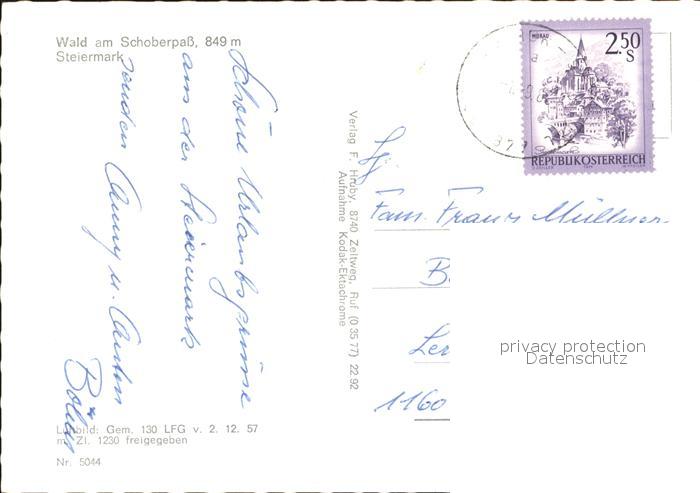 Wald am Schoberpaß, 849 m
Steiermark
Schöne Urlaubsgrüsse
aus der Steiermark
senden Anny u. Anton
Luftbild: Gem. 130 LFG v. 2. 12. 57
m. Zl. 1230 freigegeben
Nr. 5044
Verlag F. Hruby, 8740 Zeltweg, Ruf (0 35 77) 22 92
Aufnahme Kodak-Ektachrome
MURAU
2.50
S
REPUBLIK ÖSTERREICH
Fam. Franz Müllner
B
Ler
1160
privacy protection
Datenschutz